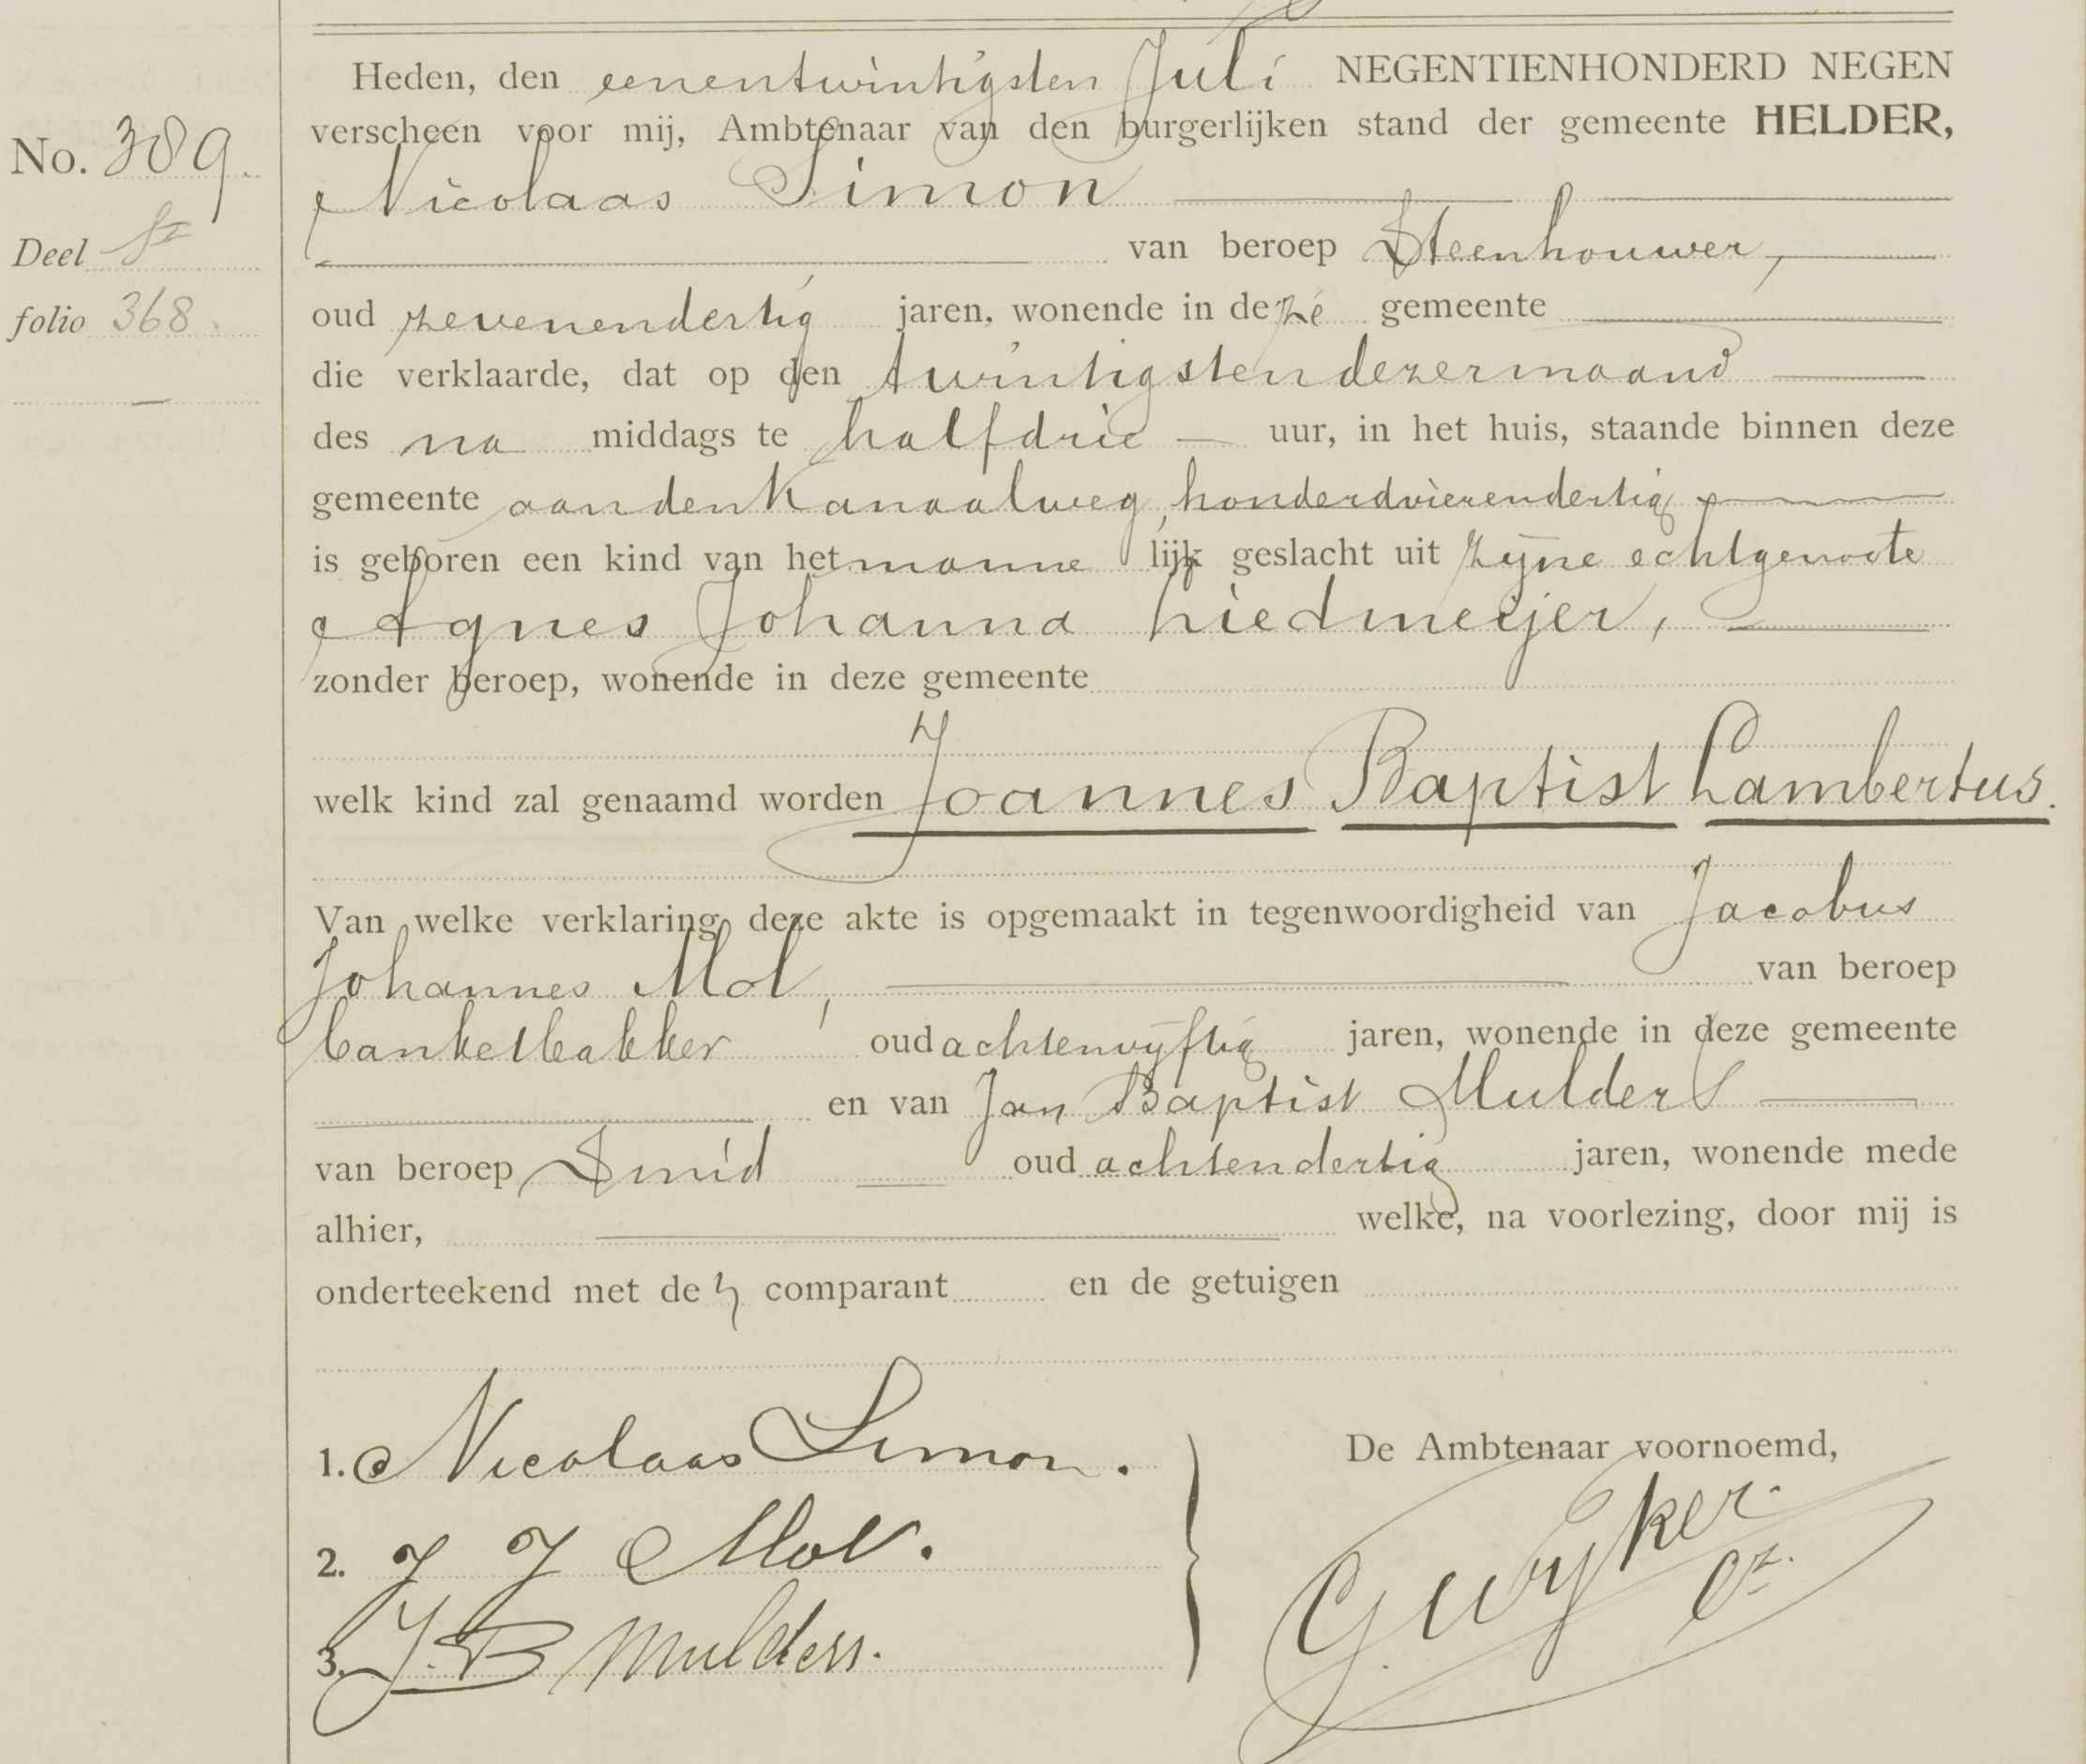 Heden, den eenentwintigsten Juli NEGENTIENHONDERD NEGEN
verscheen voor mij, Ambtenaar van den burgerlijken stand der gemeente HELDER,
No. 389.
Nicolaas Simon
Deel
van beroep Steenhouwer,
folio 368.
oud zevenendertig jaren, wonende in deze gemeente
die verklaarde, dat op den twintigsten dezer maand
des na middags te half drie uur, in het huis, staande binnen deze
gemeente aan den Kanaalweg, honderdvierendertig
is geboren een kind van het manne lijk geslacht uit zijne echtgenoote
Agnes Johanna Liedmeijer,
zonder beroep, wonende in deze gemeente
welk kind zal genaamd worden Joannes Baptist Lambertus.
Van welke verklaring deze akte is opgemaakt in tegenwoordigheid van Jacobus
Johannes Mol, van beroep
banketbakker oud achtenvijftig jaren, wonende in deze gemeente
en van Jan Baptist Mulders
van beroep Smid oud achtendertig jaren, wonende mede
alhier, welke, na voorlezing, door mij is
onderteekend met de n comparant en de getuigen
1. Nicolaas Simon.
De Ambtenaar voornoemd,
2. J J Mol.
G. Wyker
3. J. B Mulders.